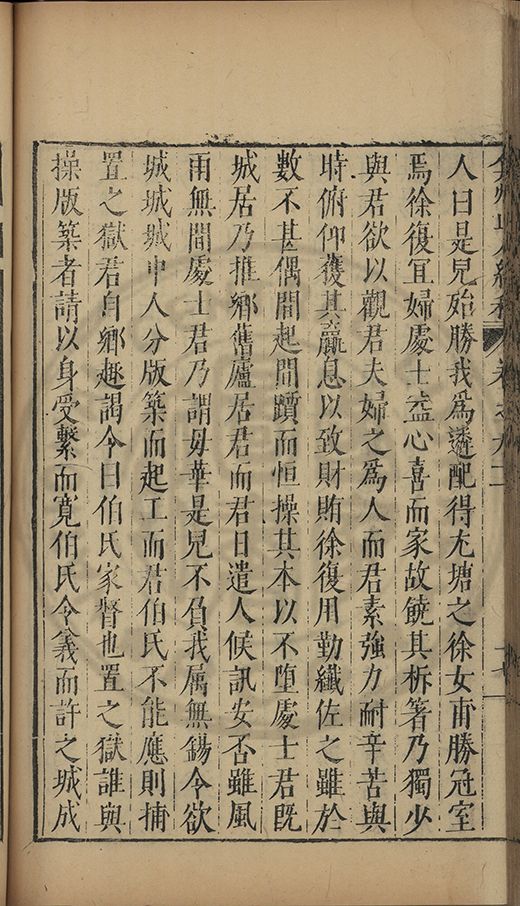 弇州山人續稿 卷之九二
人曰是兒殆勝我爲遴配得尤塘之徐女甫勝冠室
焉徐復宜婦處士益心喜而家故饒其析箸乃獨少
與君欲以觀君夫婦之爲人而君素強力耐辛苦與
時俯仰獲其贏息以致財賄徐復用勤纖佐之雖於
數不甚偶間起間躓而恒操其本以不墮處士君既
城居乃推鄉舊廬居君而君日遣人候訊安否雖風
雨無間處士君乃謂毋華是兒不負我属無錫令欲
城城城中人分版築而起工而君伯氏不能應則捕
置之獄君自鄉趣謁令曰伯氏家督也置之獄誰與
操版築者請以身受繫而寬伯氏令義而許之城成